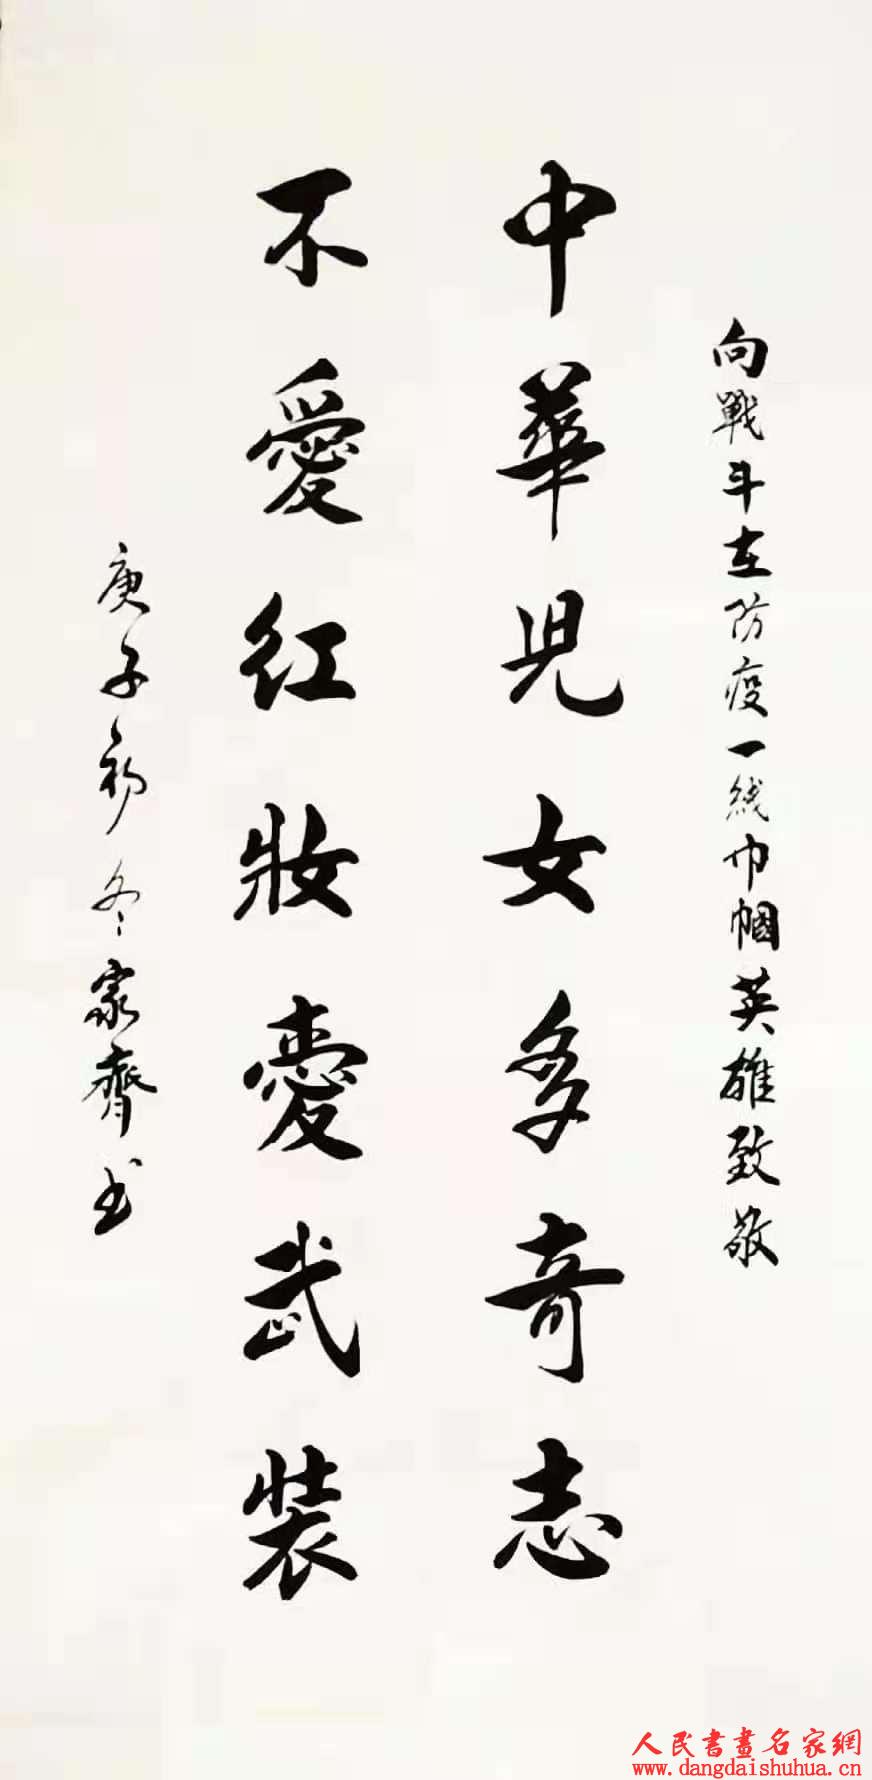 向戰斗在防疫一线巾帼英雄致敬
中華兒女多奇志
不愛红妝愛武装
庚子初冬家齊书
人民書畫名家網
www.dangdaishuhua.cn